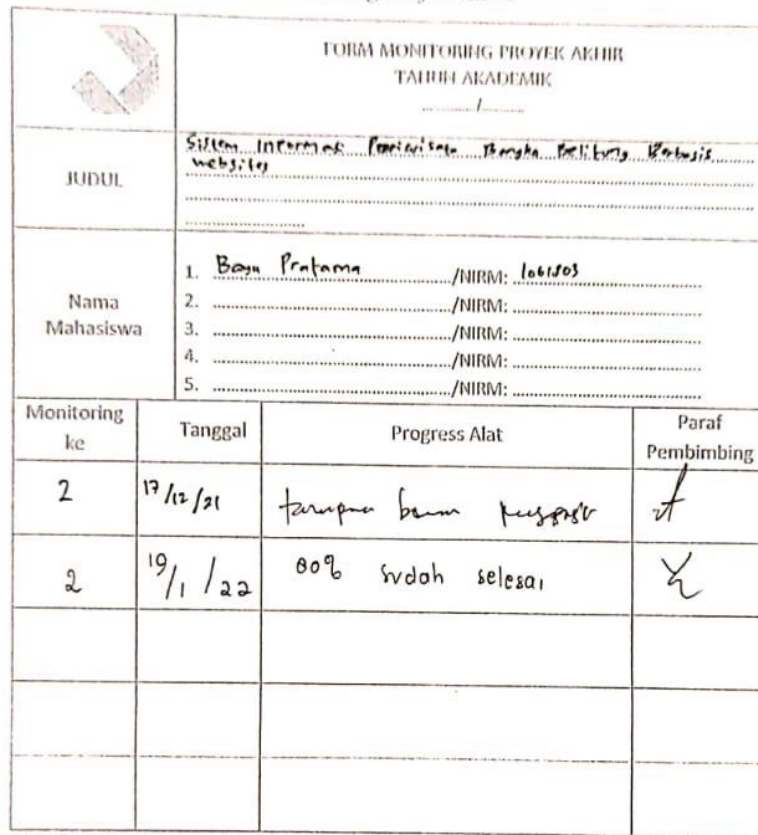 FORM MONITORING PROYEK AKHIR
TAHUN AKADEMIK
............/............
JUDUL
Sistem Informasi Pariwisata Bangka Belitung Berbasis
websites
Nama
Mahasiswa
1. Bayu Pratama /NIRM:
2. /NIRM:
3. /NIRM:
4. /NIRM:
5. /NIRM:
Monitoring ke Tanggal Progress Alat Paraf Pembimbing
2 17/12/21
2 19/1/22 80% sudah selesai